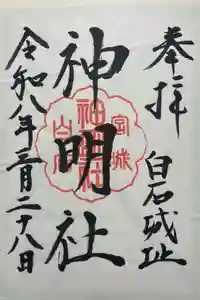 奉拝
白石城址
神明社
令和八年三月二十八日
宮城
神明社
白石